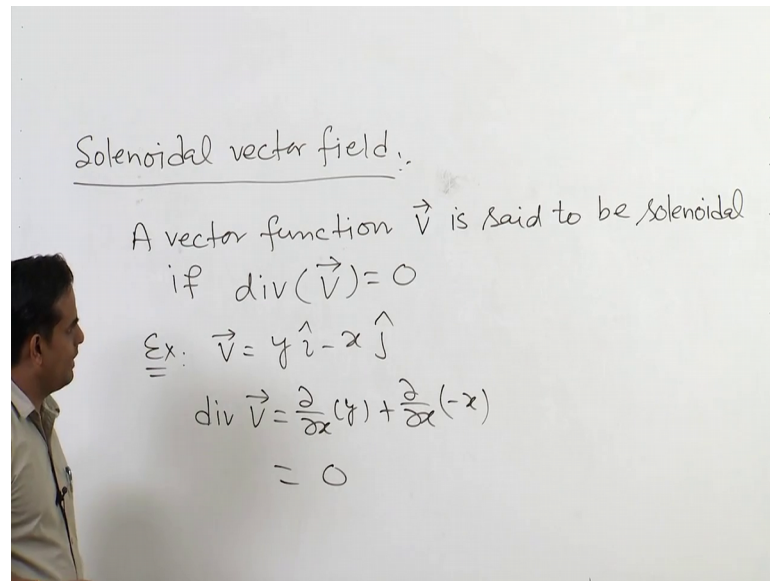 Solenoidal vector field:.
A vector function V⃗ is said to be solenoidal
if div(V⃗) = 0
Ex: V⃗ = y î - x ĵ
div V⃗ = ∂/∂x (y) + ∂/∂x (-x)
= 0